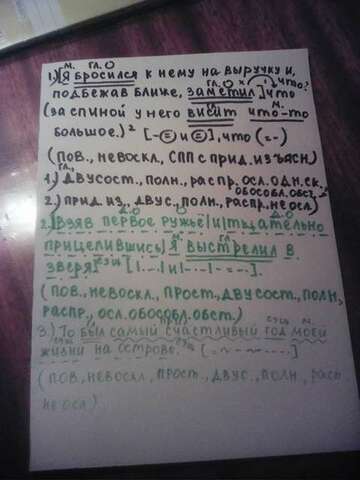 М. ГЛ.
1.) [Я бросился к нему на выручку и,
подбежав ближе, заметил], что что?
(за спиной у него висит что-то
большое.)² [-(=) и (=)], что (=-)
(пов., невоскл, СПП с прид. изъясн)
1.) двусост., полн., распр, осл. одн. ск., обособл. обст.
2.) прид. из., двус., полн, распр, не осл)
2.) |Взяв первое ружьё| и |тщательно
прицелившись,| я выстрелил в
зверя. [|-.-.| и |-.-.| - = -.-].
(пов., невоскл, прост., двусост., полн,
распр., осл. обособл. обст.)
3.) То был самый счастливый год моей
жизни на острове.
(пов., невоскл., прост., двус., полн., расп
не осл)